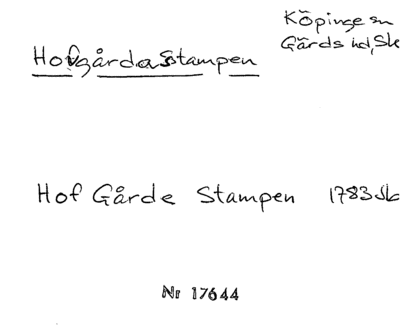 Köpinge sn
Gärds hd, Sk
Hovgårdastampen
Hof Gårde Stampen 1783 Jb
Nr 17644